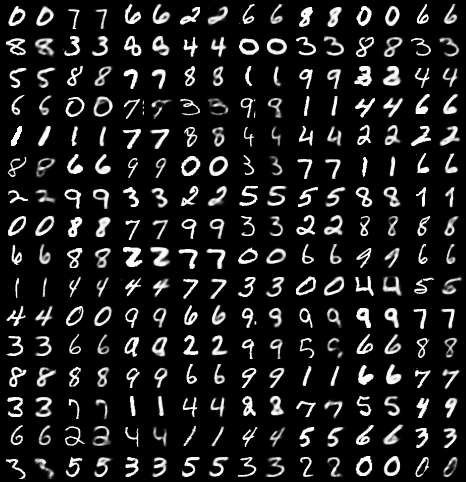 0 0 7 7 6 6 2 2 6 6 8 8 0 0 6 6
8 8 3 3 8 8 4 4 0 0 3 3 8 8 3 3
5 5 8 8 7 7 8 8 1 1 9 9 3 3 4 4
6 6 0 0 7 7 3 3 9 9 1 1 4 4 6 6
1 1 1 1 7 7 8 8 4 4 4 4 2 2 2 2
8 8 6 6 9 9 0 0 3 3 7 7 1 1 6 6
2 2 9 9 3 3 2 2 5 5 5 5 8 8 1 1
0 0 8 8 7 7 9 9 3 3 2 2 8 8 8 8
6 6 8 8 2 2 7 7 0 0 6 6 9 9 6 6
1 1 4 4 4 4 7 7 3 3 0 0 4 4 5 5
4 4 0 0 9 9 6 6 9 9 9 9 9 9 7 7
3 3 6 6 9 9 2 2 9 9 5 6 6 8 8
8 8 8 8 9 9 6 6 9 9 1 1 6 6 7 7
3 3 7 7 1 1 4 4 8 8 7 7 5 5 4 9
6 6 2 2 4 4 1 1 4 4 5 5 6 6 3 3
3 3 5 5 3 3 5 5 3 3 2 2 0 0 0 0